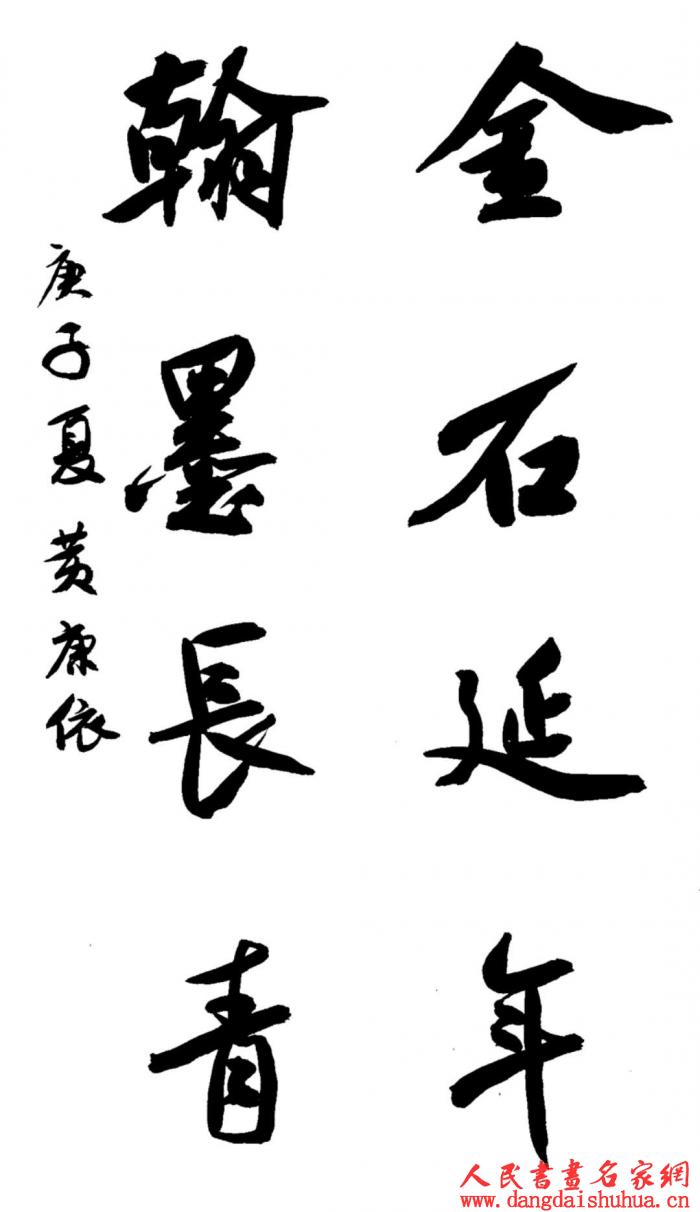 金石延年
翰墨長青
庚子夏黄康依
人民書畫名家網
www.dangdaishuhua.cn